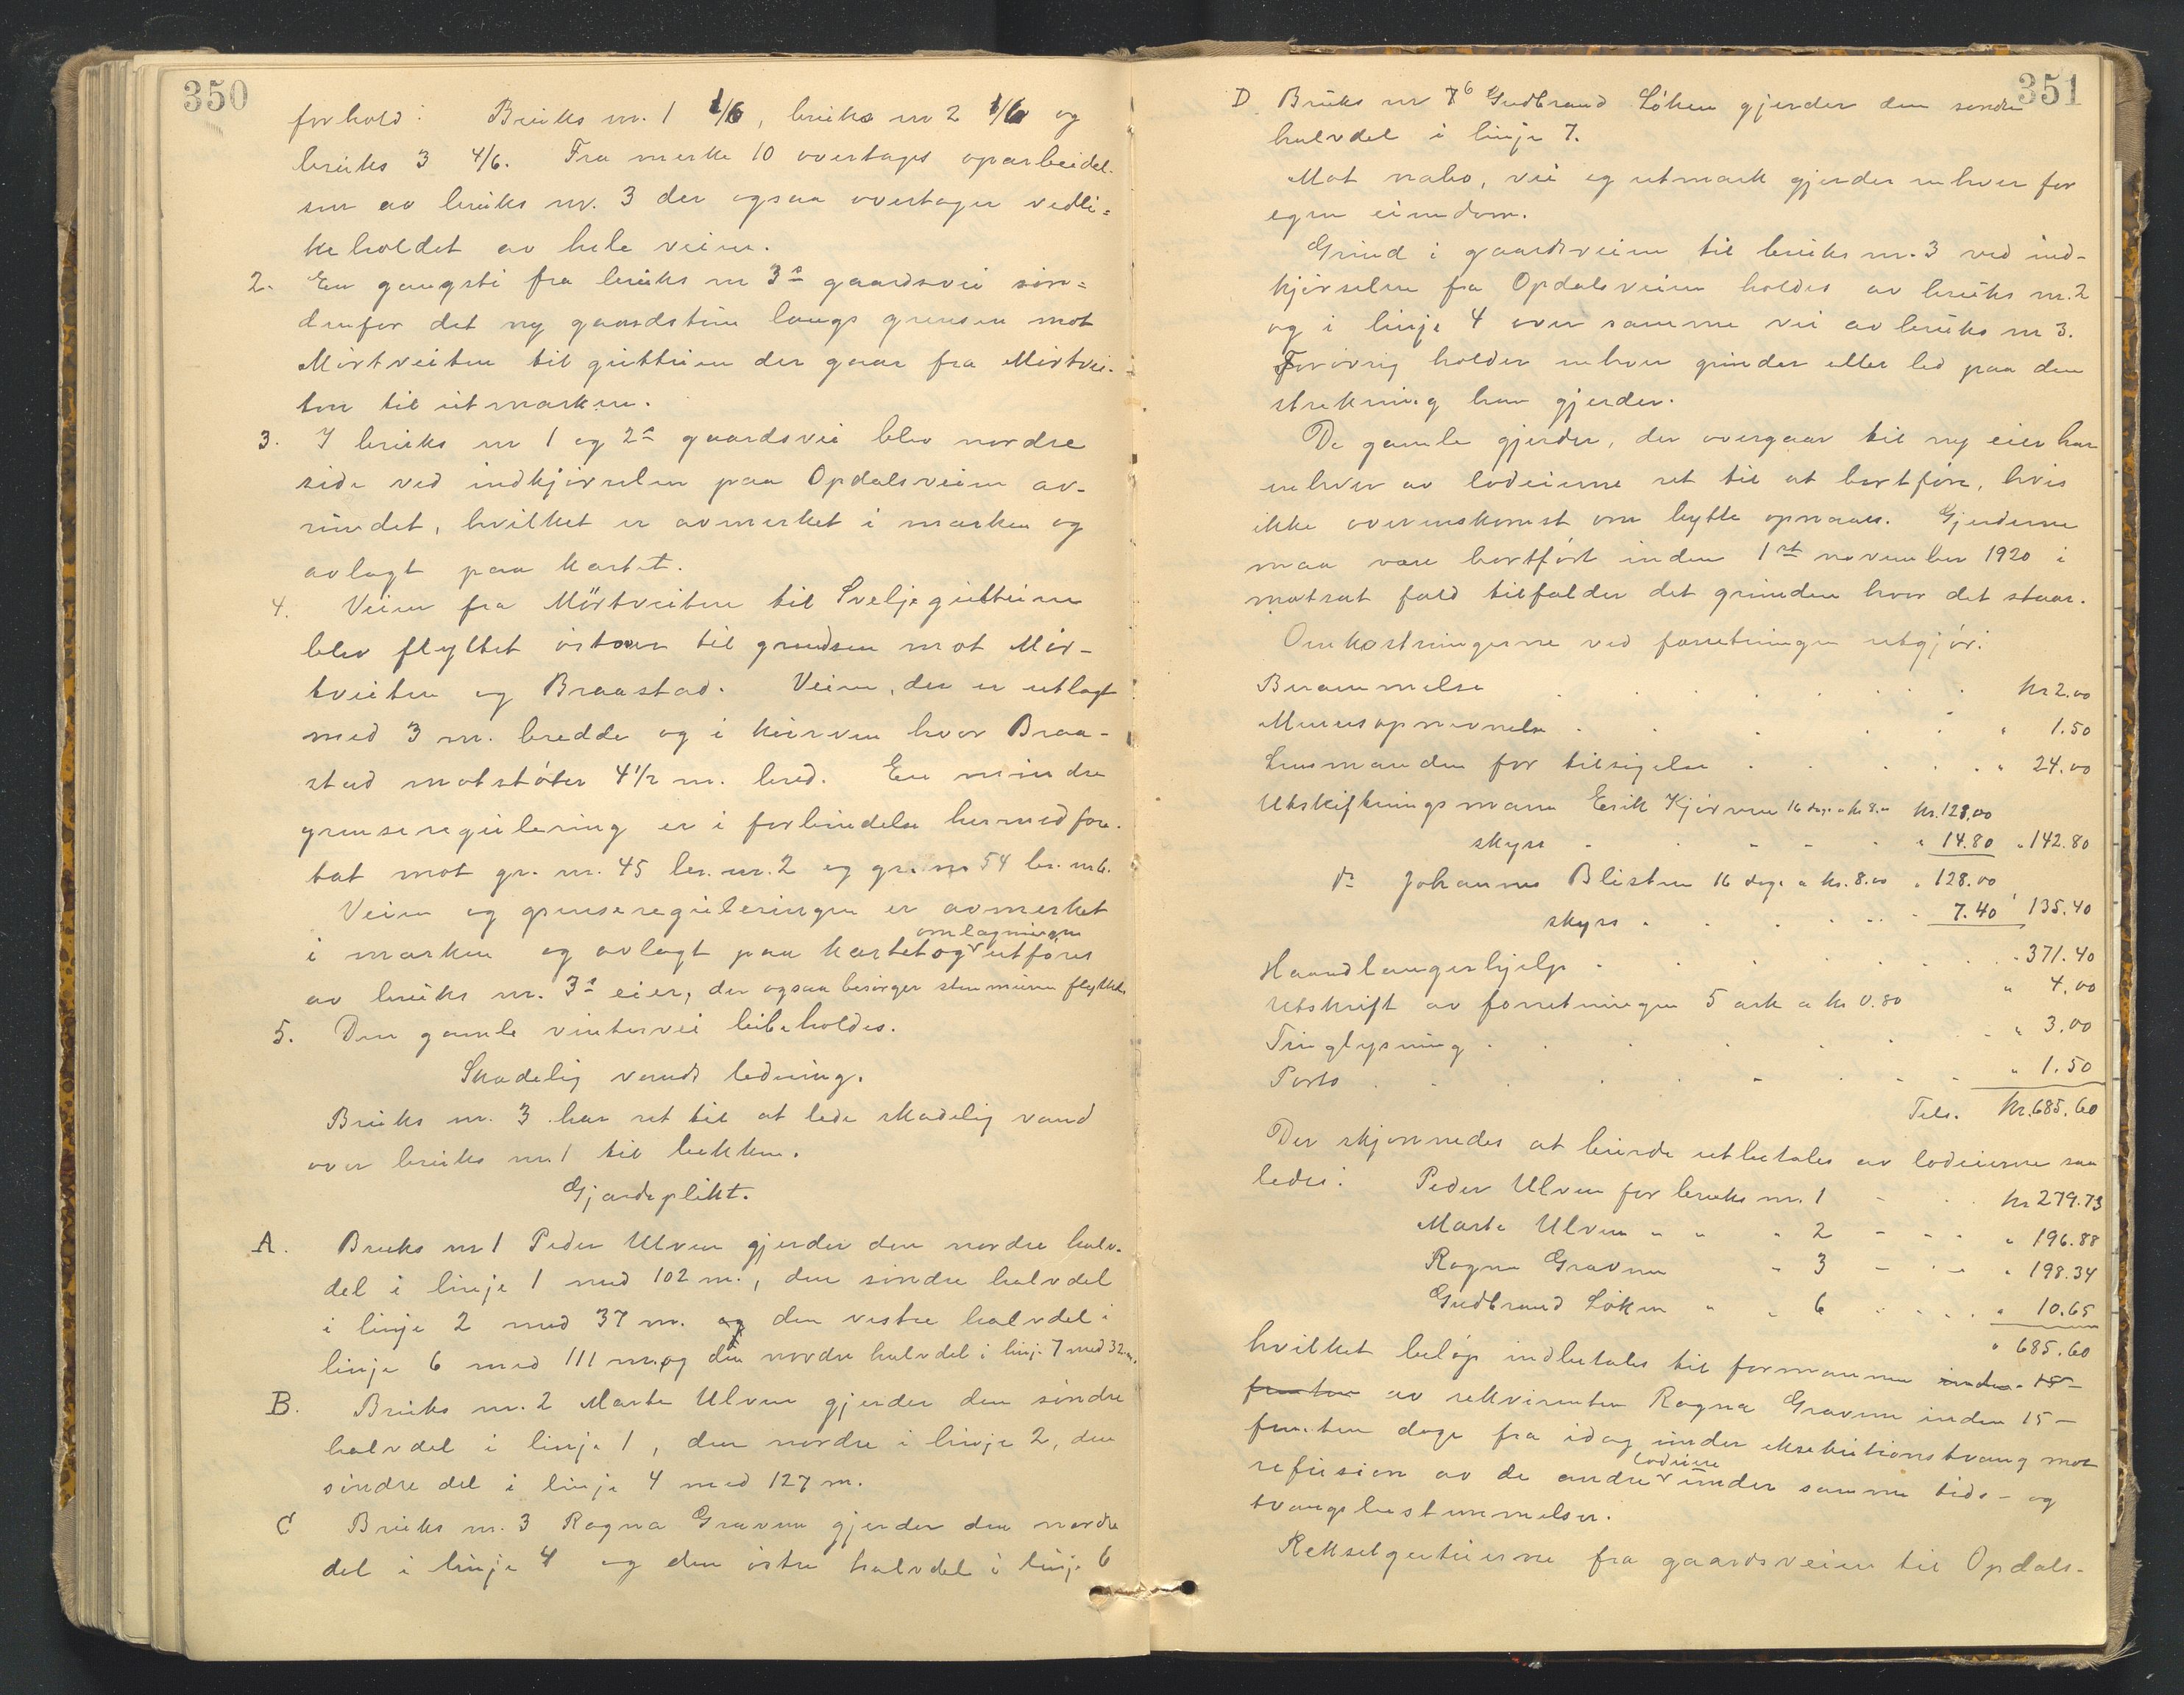 350
forhold: Bruks nr. 1 1/6, bruks nr 2 1/6 og
bruks 3 4/6. Fra merke 10 overtages oparbeidel-
sen av bruks nr. 3 der ogsaa overtager vedli=
keholdet av hele veien.
2. En gangsti fra bruks nr 3s gaardsvei søn=
denfor det ny gaardstun langs grensen mot
Mørtveiten til gutteien der gaar fra Mørtvei-
ten til utmarken.
3. I bruks nr 1 og 2s gaardsvei blev nordre
side ved indkjørselen paa Opdalsveien av-
rundet, hvilket er avmerket i marken og
avlagt paa kartet.
4. Veien fra Mörtveiten til Sveljegutteien
blev flyttet østover til grendsen mot Mør-
tveiten og Braastad. Veien, der er utlagt
med 3 m. bredde og i kurven hvor Braa-
stad motstøter 4 1/2 m. bred. En mindre
grenseregulering er i forbindelse hermed fore-
tat mot gr. nr. 45 br. nr. 2 og gr. nr 54 br. nr 6.
Veien og grensereguleringen er avmerket
omlægningen
i marken og avlagt paa kartet og utføres
av bruks nr. 3s eier, der ogsaa besørger stenmuren flyttet.
5. Den gamle vintervei beibeholdes.
Skadelig vands ledning.
Bruks nr. 3 har ret til at lede skadelig vand
over bruks nr. 1 til bekken.
Gjærdeplikt.
A. Bruks nr 1 Peder Ulven gjerder den nordre halv-
del i linje 1 med 102 m., den søndre halvdel
i linje 2 med 37 m. og den vestre halvdel i
linje 6 med 111 m. og den nordre halvdel i linje 7 med 32 m.
B. Bruks nr. 2 Marte Ulven gjerder den søndre
halvdel i linje 1, den nordre i linje 2, den
søndre del i linje 4 med 127 m.
C Bruks nr. 3 Ragna Gravem gjerder den nordre
del i linje 4 og den østre halvdel i linje 6
351
D Bruks nr 6 Gudbrand Løken gjerder den søndre
halvdel i linje 7.
Mot nabo, vei og utmark gjerder enhver for
egen eiendom.
Grind i gaardsveien til bruks nr. 3 ved ind-
kjørselen fra Opdalsveien holdes av bruks nr. 2
og i linje 4 over samme vei av bruks nr 3.
Forøvrig holder enhver grinder eller led paa den
strekning han gjerder.
De gamle gjerder, der overgaar til ny eier har
enhver av lodeierne ret til at bortføre, hvis
ikke overenskomst om bytte opnaaes. Gjerderne
maa være bortført inden 1st november 1920 i
motsat fald tilfalder det grunden hvor det staar.
Omkostningerne ved forretningen utgjør:
Berammelse kr 2.00
Mensopnevnelse " 1.50
Lensmanden for tilsigelse " 24.00
Utskiftningsmann Erik Kjørven 16 dage a kr 8.00 kr. 128.00
skyss " 14.80 " 142.80
do Johannes Blisten 16 dage a kr. 8.00 " 128.00
skyss 7.40 " 135.40
Haandlangerhjelp 371.40
Utskrift av forretningen 5 ark a kr 0.80 " 4.00
Tinglysning " 3.00
Porto " 1.50
Tils. kr. 685.60
Der skjønnedes at burde utbetales av lodeierne saa
ledes: Peder Ulven for bruks nr. 1 kr 279.73
Marte Ulven " " " 2 " 196.88
Ragna Gravem " 3 " 198.34
Gudbrand Løken " " 6 " 10.65
" 685.60
hvilket beløp indbetales til formannen inden 15
femten av rekvirenten Ragna Gravem inden 15 -
femten dage fra idag under eksekutionstvang mot
lodeiere
refusion av de andre under samme tids- og
tvangsbestemmelser.
Rekselgutteierne fra gaardsveien til Opdals-